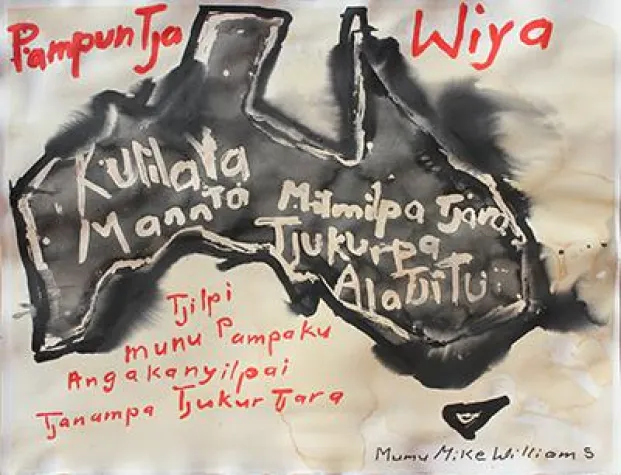 Pampuntja Wiya
Kulilaya
Mannta
Miilmilpa Tjara
Tjukurpa
Alatjitu
Tjilpi
munu Pampaku
Angakanyilpai
Tjanampa Tjukur Tjara
Mumu Mike Williams